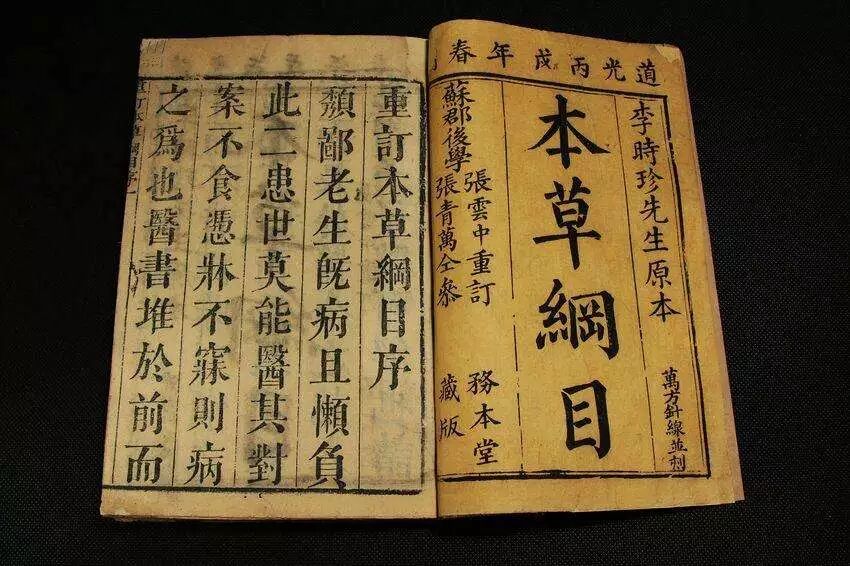 道光丙戌年春
李時珍先生原本
萬方針線並刻
本草綱目
張雲中重訂
蘇郡後學
張青萬仝參
務本堂
藏版
重訂本草綱目序
頽鄙老生既病且懶負
此二患世莫能醫其對
案不食憑牀不寐則病
之爲也醫書堆於前而